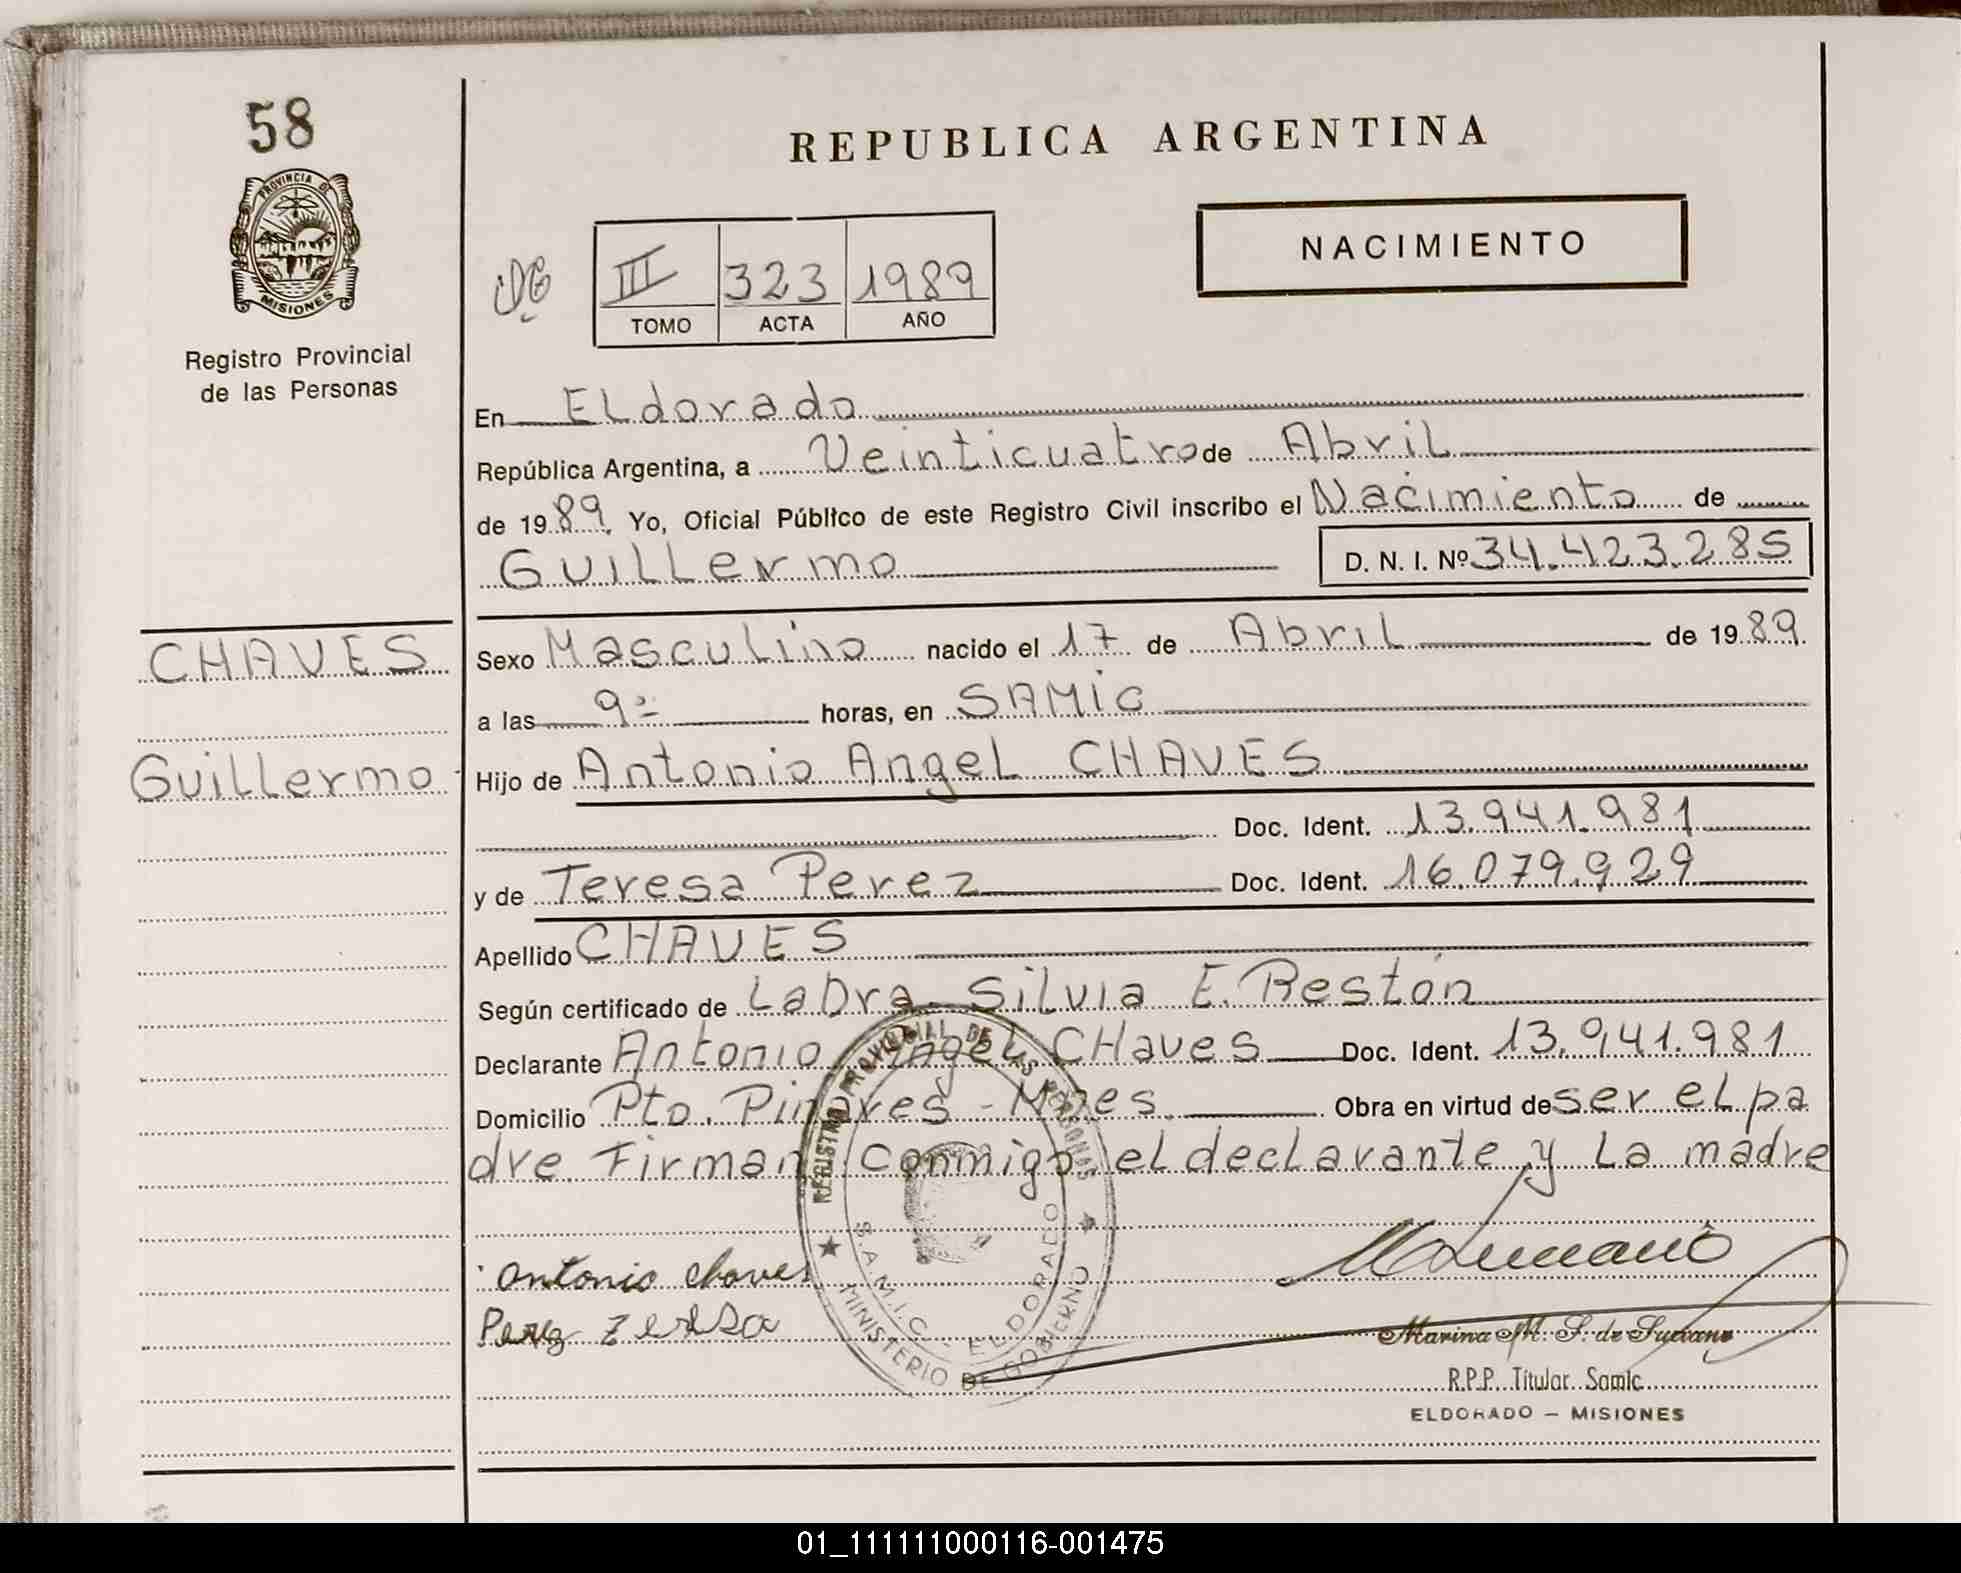 58
PROVINCIA DE
MISIONES
Registro Provincial
de las Personas
REPUBLICA ARGENTINA
NACIMIENTO
III 323 1989
TOMO ACTA AÑO
En ELdorado
República Argentina, a Veinticuatro de AbriL
de 1989. Yo, Oficial Público de este Registro Civil inscribo el Nacimiento de
GuiLLermo D. N. I. Nº 34.423.285
CHAVES
Sexo MascuLino nacido el 17 de AbriL de 1989.
a las 9= horas, en SAMIC
GuiLLermo
Hijo de Antonio AngeL CHAVES
Doc. Ident. 13.941.981
y de Teresa Perez Doc. Ident. 16.079.929
Apellido CHAVES
Según certificado de La Dra. SiLvia E. Restón
Declarante Antonio AngeL CHaves Doc. Ident. 13.941.981
Domicilio Pto. Pinares - Mnes. Obra en virtud de ser eL pa
dre. Firman conmigo eL decLarante y La madre
Antonio chaves
Perez Teresa
REGISTRO PROVINCIAL DE LAS PERSONAS
S.A.M.I.C. - ELDORADO
MINISTERIO DE GOBIERNO
Marina M. S. de Suriano
R.P.P. Titular Samic
ELDORADO — MISIONES
01_111111000116-001475